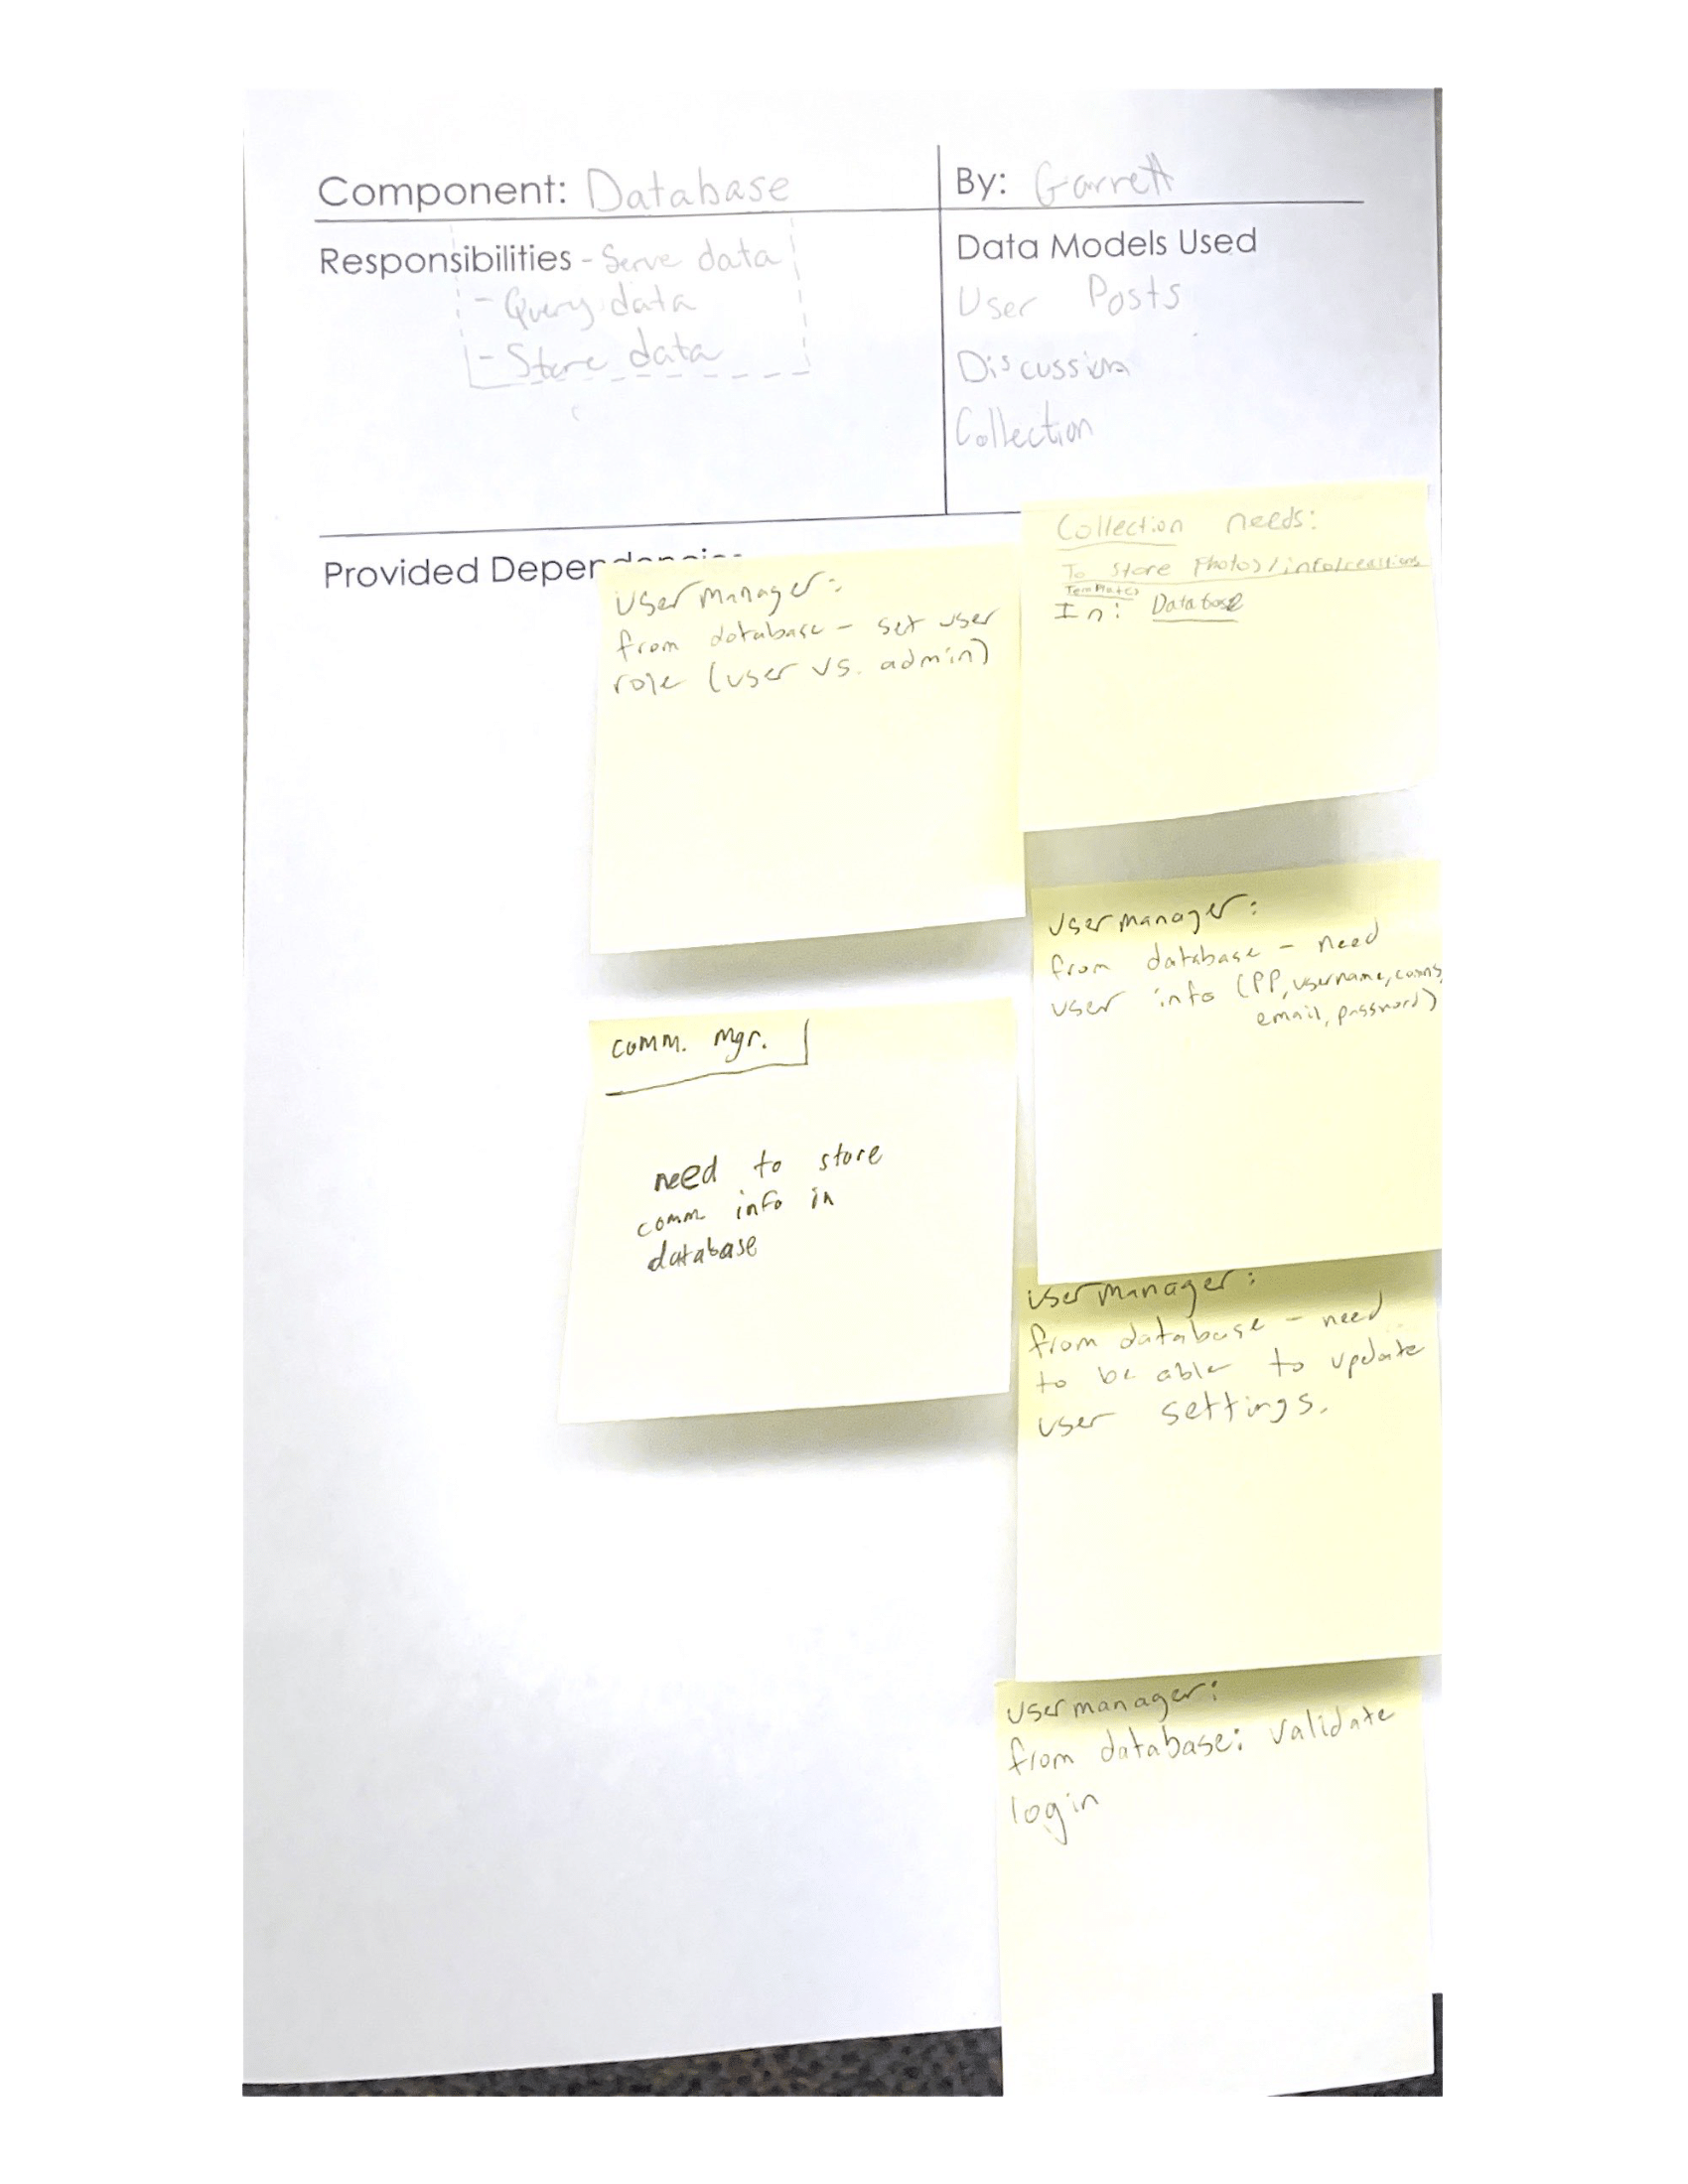 Component: Database
By: Garrett
Responsibilities - Serve data
- Query data
- Store data
Data Models Used
User Posts
Discussion
Collection
Provided Dependencies
User manager:
from database - set user
role (user vs. admin)
Collection needs:
To store Photos/info/creations
Templates
In: Database
User manager:
from database - need
user info (PP, username, comms,
email, password)
comm. mgr.
need to store
comm info in
database
User manager:
from database - need
to be able to update
user settings.
User manager:
from database: validate
login